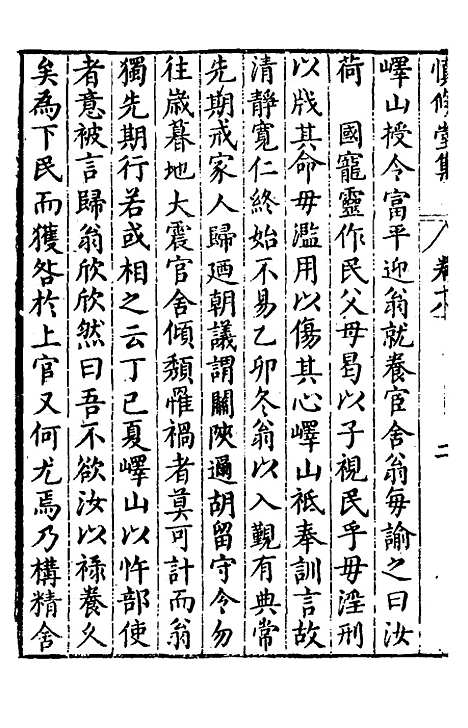 慎修堂集
卷十
二
嶧山授令富平迎翁就養官舍翁每諭之曰汝
荷　國寵靈作民父母曷以子視民乎毋淫刑
以戕其命毋濫用以傷其心嶧山祗奉訓言故
清靜寬仁終始不易乙卯冬翁以入覲有典常
先期戒家人歸廼朝議謂關陝逼胡留守令勿
往歲暮地大震官舍傾頹罹禍者莫可計而翁
獨先期行若或相之云丁巳夏嶧山以忤部使
者意被言歸翁欣欣然曰吾不欲汝以祿養久
矣為下民而獲咎於上官又何尤焉乃構精舍